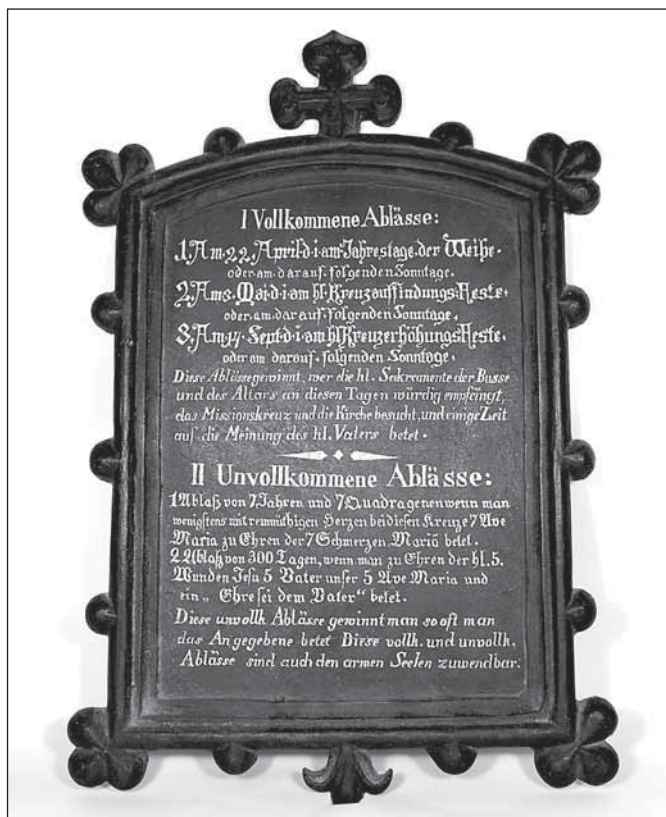 I Vollkommene Ablässe:
1. Am 22. April d. i. am Jahrestage der Weihe.
oder am darauf folgenden Sonntage.
2. Am 3. Mai d. i. am hl. Kreuzauffindungs Feste
oder am darauf folgenden Sonntage.
3. Am 14. Sept. d. i. am hl Kreuzerhöhungs Feste.
oder am darauf folgenden Sonntage.
Diese Ablässe gewinnt, wer die hl. Sakramente der Busse
und des Altars an diesen Tagen würdig empfängt,
das Missionskreuz und die Kirche besucht, und einige Zeit
auf die Meinung des hl. Vaters betet.
II Unvollkommene Ablässe:
1 Ablaß von 7 Jahren und 7 Quadragenen wenn man
wenigstens mit reumüthigen Herzen bei diesen Kreuze 7 Ave
Maria zu Ehren der 7 Schmerzen Mariä betet.
2. Ablaß von 300 Tagen, wenn man zu Ehren der hl. 5.
Wunden Jesu 5 Vater unser 5 Ave Maria und
ein „Ehre sei dem Vater“ betet.
Diese unvollk. Ablässe gewinnt man so oft man
das Angegebene betet Diese vollk. und unvollk.
Ablässe sind auch den armen Seelen zuwendbar.